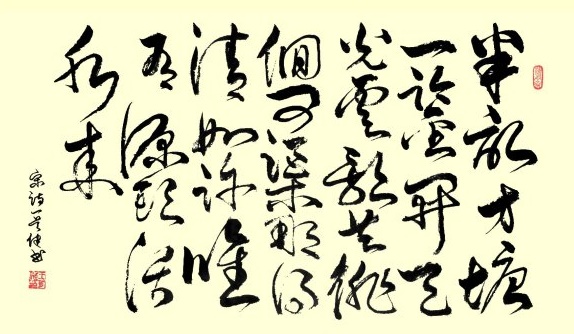 半畝方塘
一鑒開天
光雲影共徘
徊問渠那得
清如許唯
有源頭活
水來
宋詩一首